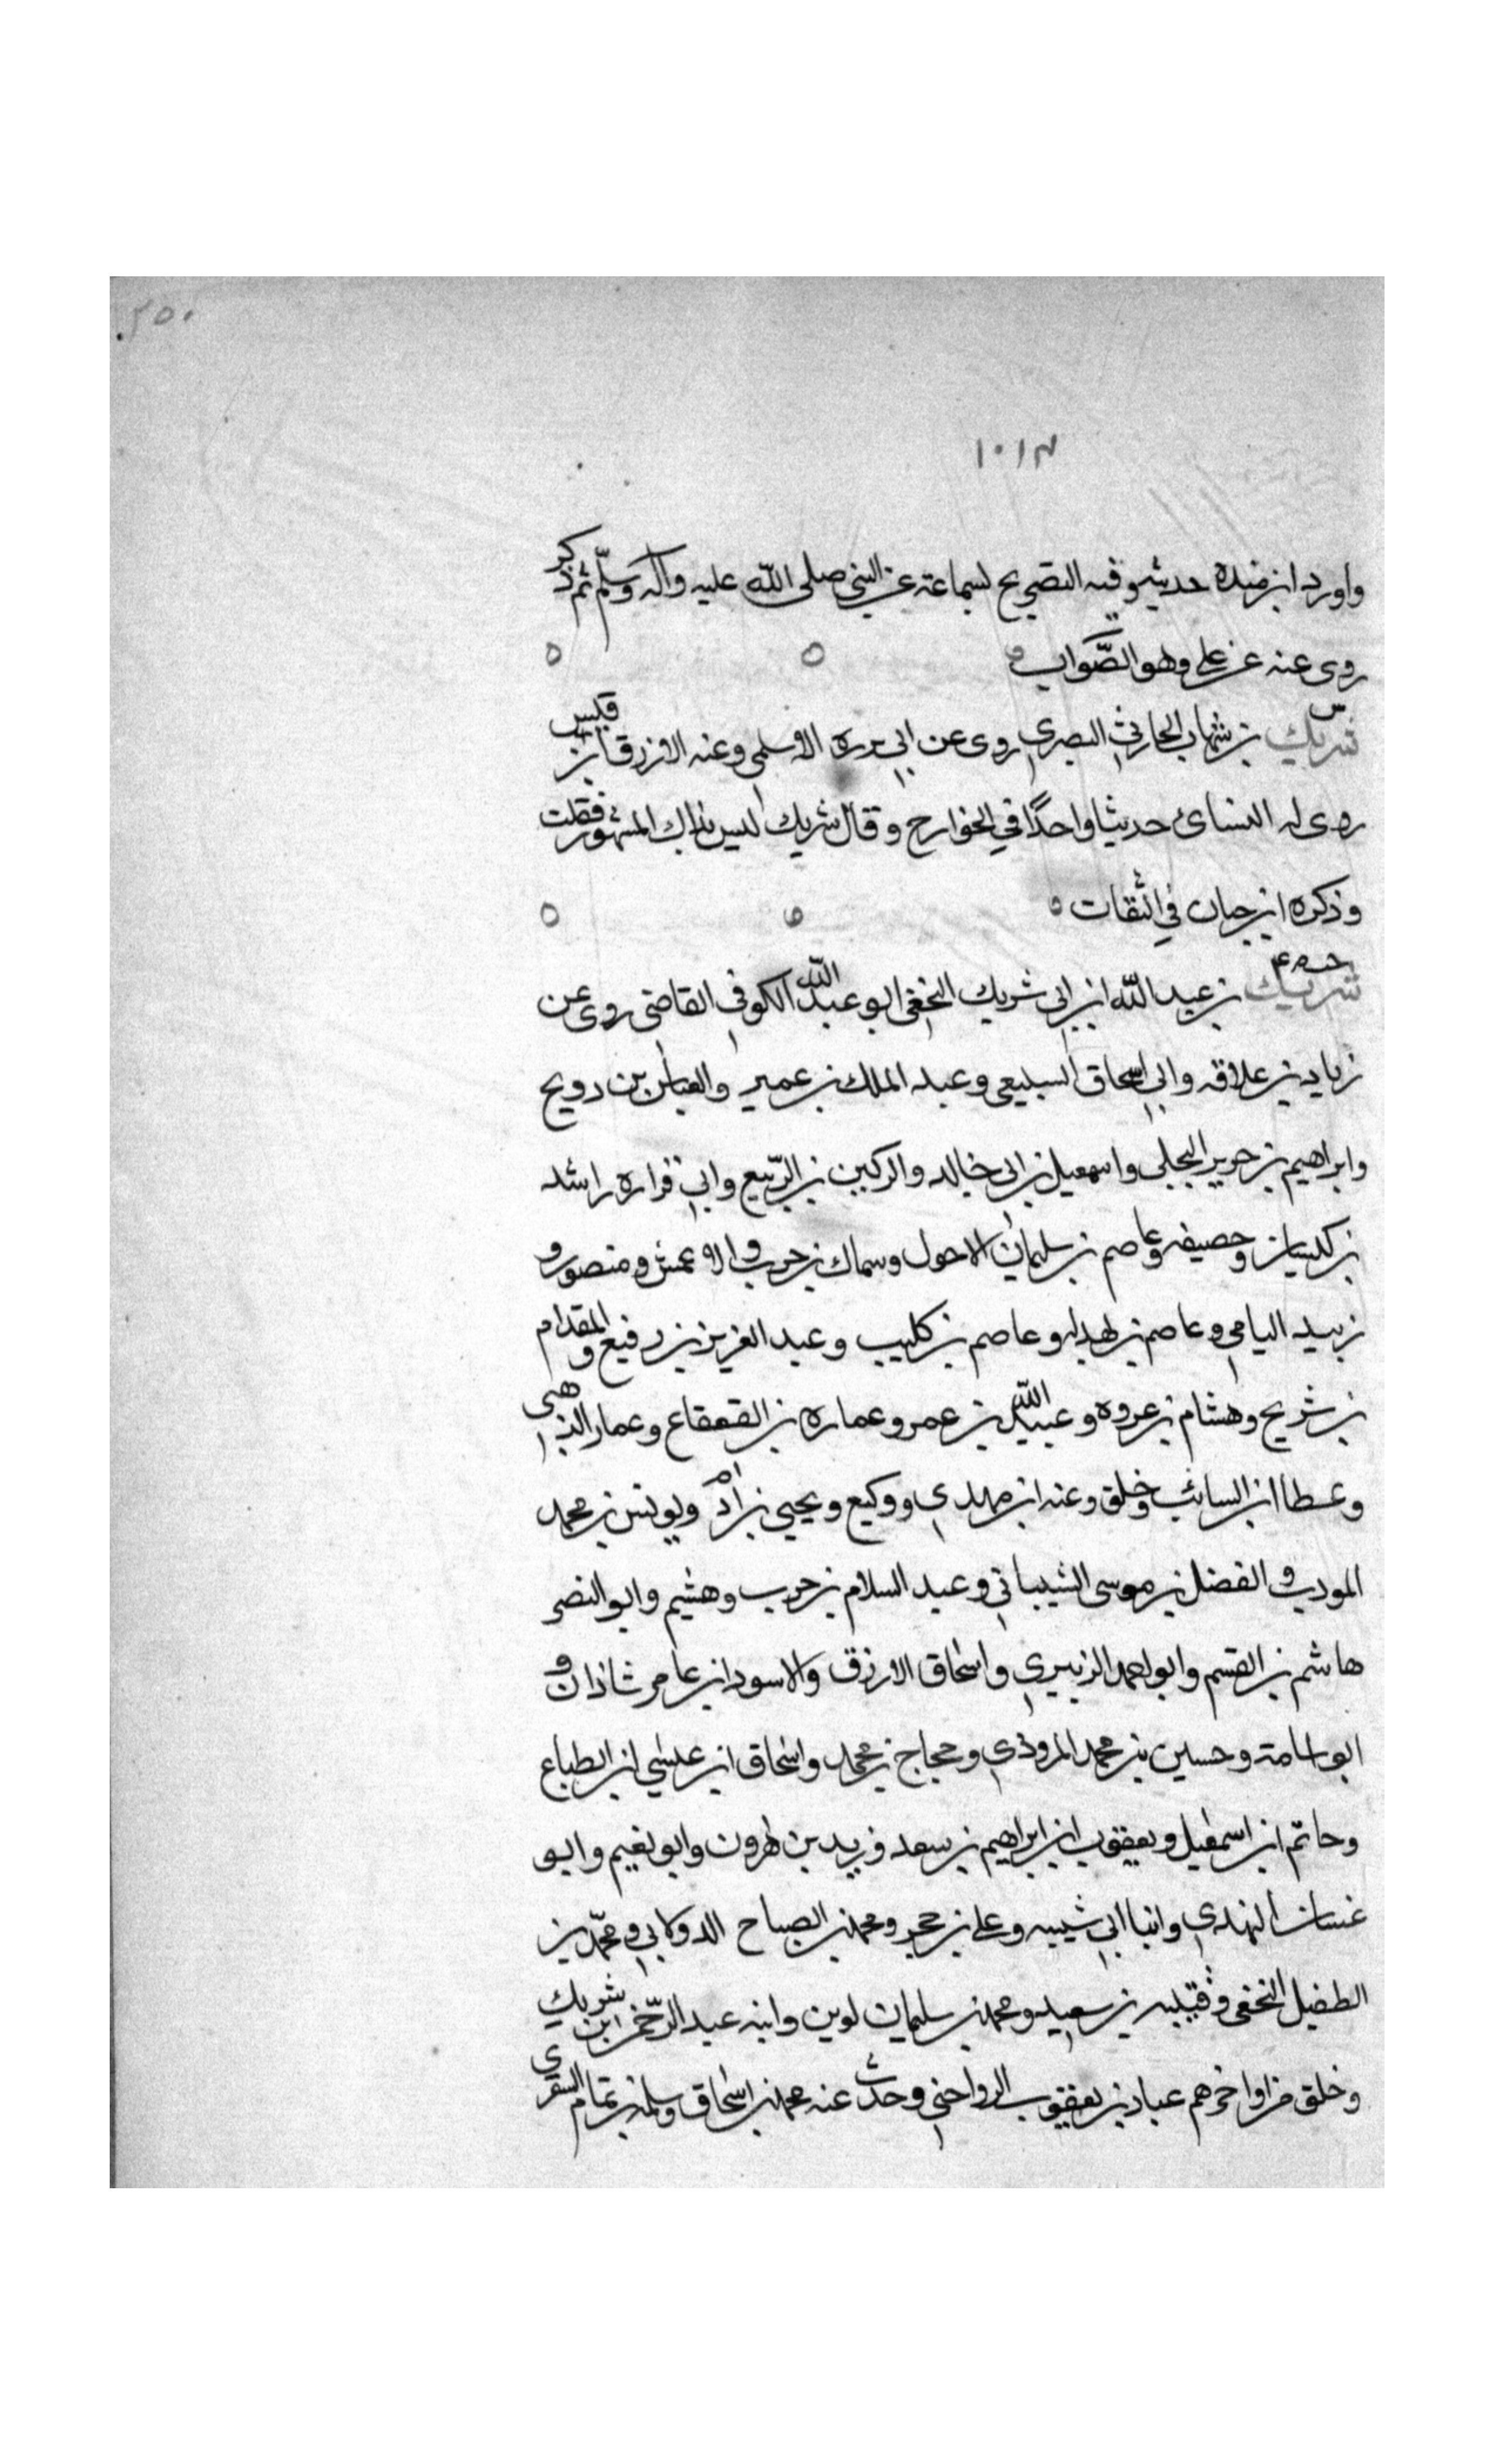 ٢٥٠
١٠١٣
واورد ابن منده حديثه وفيه التصريح لسماعته عن النبي صلى الله عليه وآله وسلّم ثم ذكر
روى عنه عن علي وهو الصَّواب
س
شريك بن شهاب الحارثي البصري روى عن ابي برزه الاسلمي وعنه الازرق ابن قيس
روى له النسائ حديثا واحدًا في الخوارج وقال شريك ليس بذاك المشهور قلت
وذكره ابن حبان في الثقات
شريك بن عبد الله ابن ابي شريك النخعي ابو عبد الله الكوفي القاضي روى عن
زياد بن علاقه وابي اسحاق السبيعي وعبد الملك بن عمير والعباس بن دريح
وابراهيم بن جرير البجلي واسمعيل بن ابي خالد والركين بن الرّبيع وابي فزاره راشد
بن كيسان وخصيف وعاصم بن سليمان الاحول وسماك بن حرب والاعمش ومنصور و
زبيد اليامي وعاصم بن بهدله وعاصم بن كليب وعبد العزيز بن رفيع والمقدام
بن شريح وهشام بن عروه وعبيد الله بن عمر وعماره بن القعقاع وعمار الذهبي
وعطا ابن السائب وخلق وعنه ابن مهدي ووكيع ويحيى بن ادم ويونس بن محمد
المودب والفضل بن موسى الشيباني وعبد السلام بن حرب وهشيم وابو النضر
هاشم بن القسم وابو احمد الزبيري واسحاق الازرق والاسود ابن عامر شاذان و
ابو اسامة وحسين بن محمد المروذي وحجاج بن محمد واسحاق ابن عيسى ابن الطباع
وحاتم ابن اسمعيل ويعقوب ابن ابراهيم بن سعد ويزيد بن هرون وابو نعيم وابو
غسان النهدي وابنا ابي شيبه وعلي بن حجر ومحمد بن الصباح الدولابي ومحمّد بن
الطفيل النخعي وقتيبه بن سعيد ومحمد بن سليمان لوين وابنه عبد الرّحمن ابن شريك
وخلق من اواخرهم عباد بن يعقوب الرواجني وحدث عنه محمد بن اسحاق وسلمة بن تمام الشقري